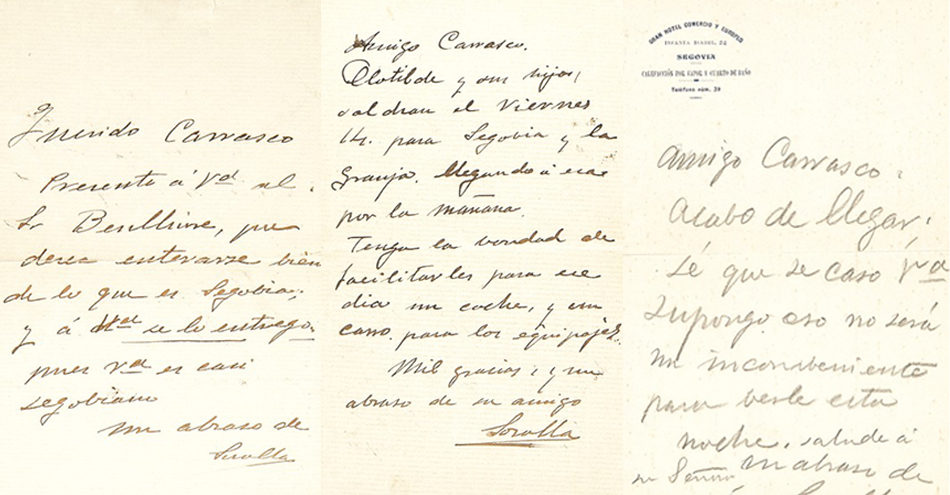 Querido Carrasco
Presento á Vd al
Sr Benlliure, que
desea enterarse bien
de lo que es Segobia;
y á Vd se lo entrego
pues Vd es casi
segobiano
un abraso de
Sorolla
Amigo Carrasco.
Clotilde y sus hijos,
saldran el Viernes
14. para Segobia y la
Granja. llegando á esa
por la mañana.
Tenga la bondad de
facilitarles para ese
dia un coche, y un
carro para los equipajes.
Mil gracias, y un
abraso de su amigo
Sorolla
GRAN HOTEL COMERCIO Y EUROPEO
INFANTA ISABEL, 24
SEGOVIA
CALEFACCIÓN POR VAPOR Y CUARTO DE BAÑO
Teléfono núm. 29
Amigo Carrasco.
Acabo de llegar.
Sé que se caso Vd
supongo eso no será
un inconbeniente
para berle esta
noche, salude á
su Señora un abraso de